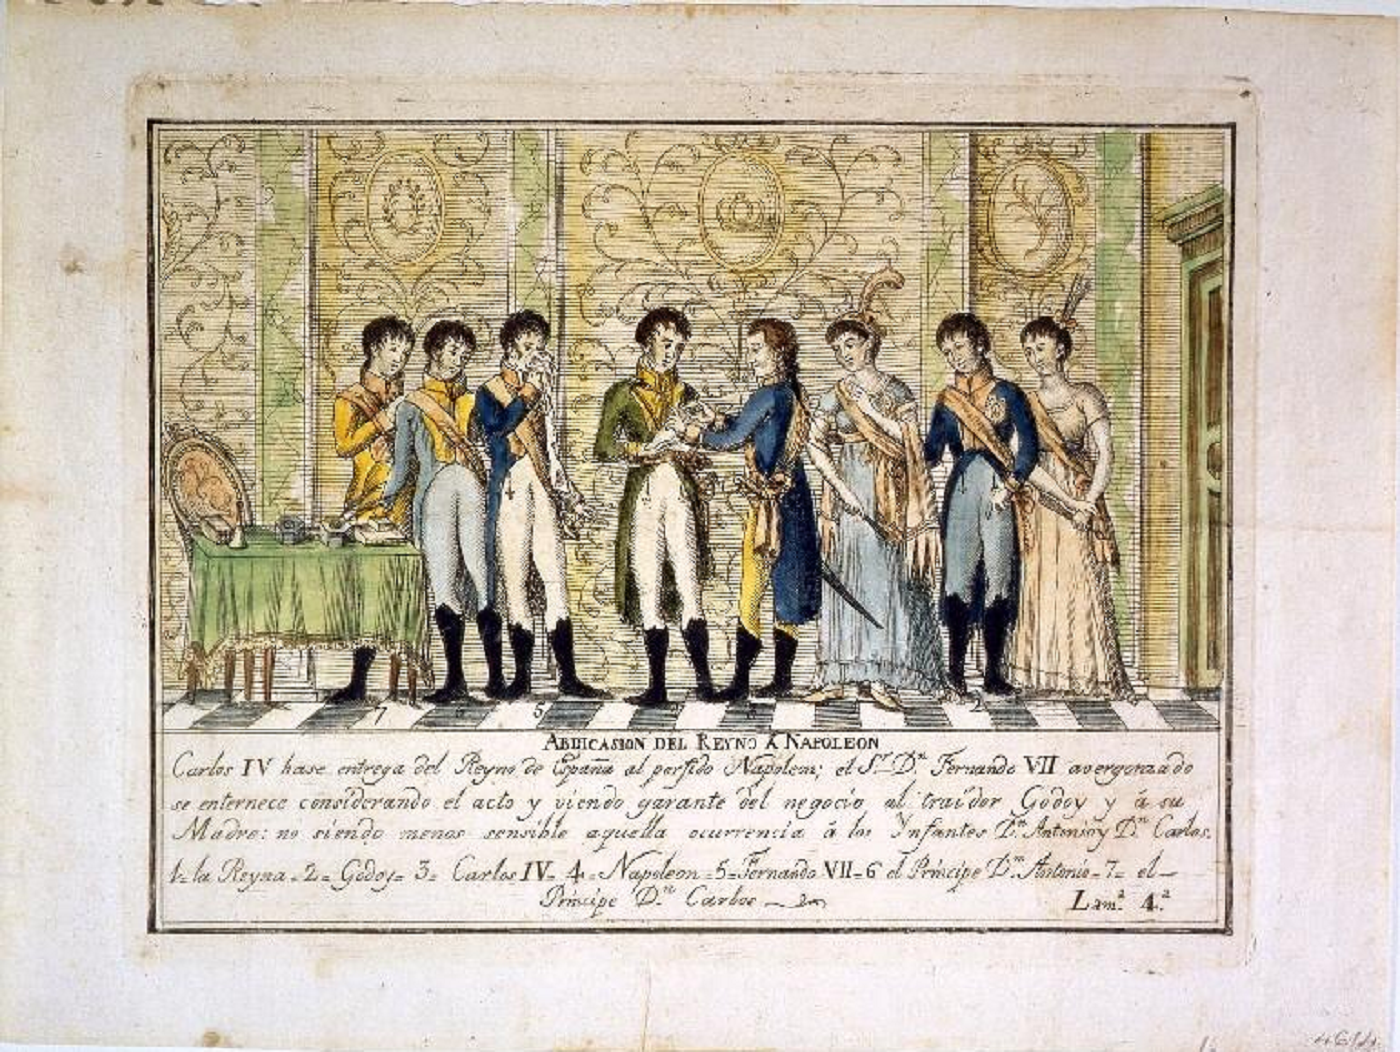 7 6 5 4 3 1 2
ABDICASION DEL REYNO Á NAPOLEON
Carlos IV hase entrega del Reyno de España al perfido Napoleon; el Sr. Dn. Fernando VII avergonzado
se enternece considerando el acto y viendo garante del negocio al traidor Godoy y á su
Madre: no siendo menos sensible aquella ocurrencia á los Ynfantes Dn. Antonio y Dn. Carlos.
1= la Reyna = 2= Godoy= 3= Carlos IV= 4= Napoleon =5=Fernando VII=6 el Príncipe Dn. Antonio=7= el—
Príncipe Dn. Carlos
Lama. 4.a